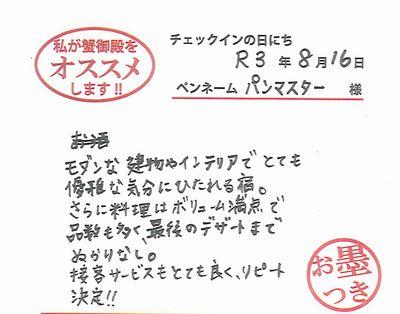 私が蟹御殿を
オススメ
します!!
チェックインの日にち
R3 年 8月16日
ペンネーム パンマスター 様
お酒
モダンな建物やインテリアでとても
優雅な気分にひたれる宿。
さらに料理はボリューム満点で
品数も多く、最後のデザートまで
ぬかりなし。
接客サービスもとても良く、リピート
決定!!
お墨
つき